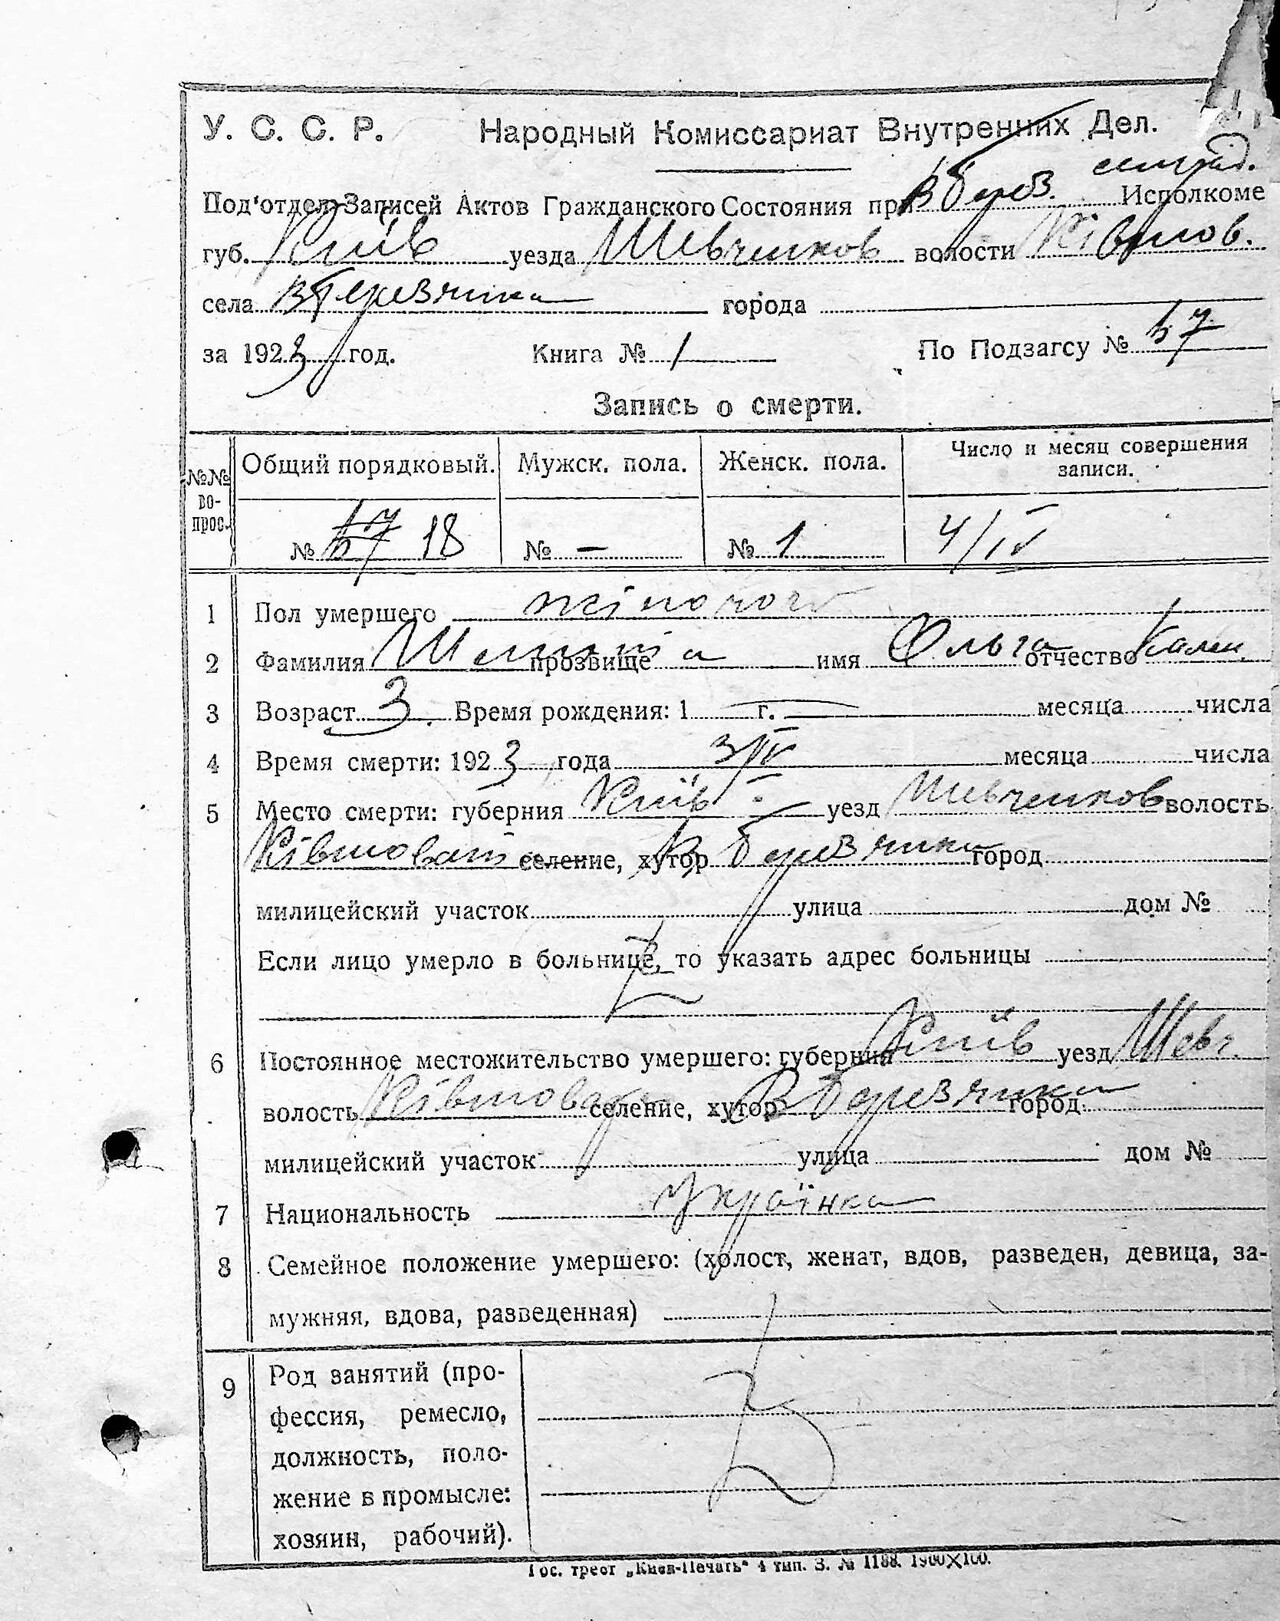 У. С. С. Р. Народный Комиссариат Внутренних Дел.
Под'отдел Записей Актов Гражданского Состояния при В Берез. сельрад. Исполкоме
губ. Київ уезда Шевченков волости Ківшов.
села В Березянка города
за 1923 год. Книга № 1 По Подзагсу № 57
Запись о смерти.
№№ вопрос. Общий порядковый. Мужск. пола. Женск. пола. Число и месяц совершения записи.
№ 57 18 № — № 1 4/IV
1 Пол умершего жіночого
2 Фамилия прозвище имя Ольга отчество Кален.
3 Возраст 3. Время рождения: 1 г. месяца числа
4 Время смерти: 1923 года 3/IV месяца числа
5 Место смерти: губерния Київ уезд Шевченков волость
Ківшоват селение, хутор В Березянка город
милицейский участок улица дом №
Если лицо умерло в больнице, то указать адрес больницы
6 Постоянное местожительство умершего: губерния Київ уезд Шевч.
волость Ківшоват селение, хутор В Березянка город
милицейский участок улица дом №
7 Национальность Українка
8 Семейное положение умершего: (холост, женат, вдов, разведен, девица, за-
мужняя, вдова, разведенная)
9 Род занятий (про-
фессия, ремесло,
должность, поло-
жение в промысле:
хозяин, рабочий).
Гос. трест „Киев-Печать“ 4 тип. З. № 1188. 1900×100.